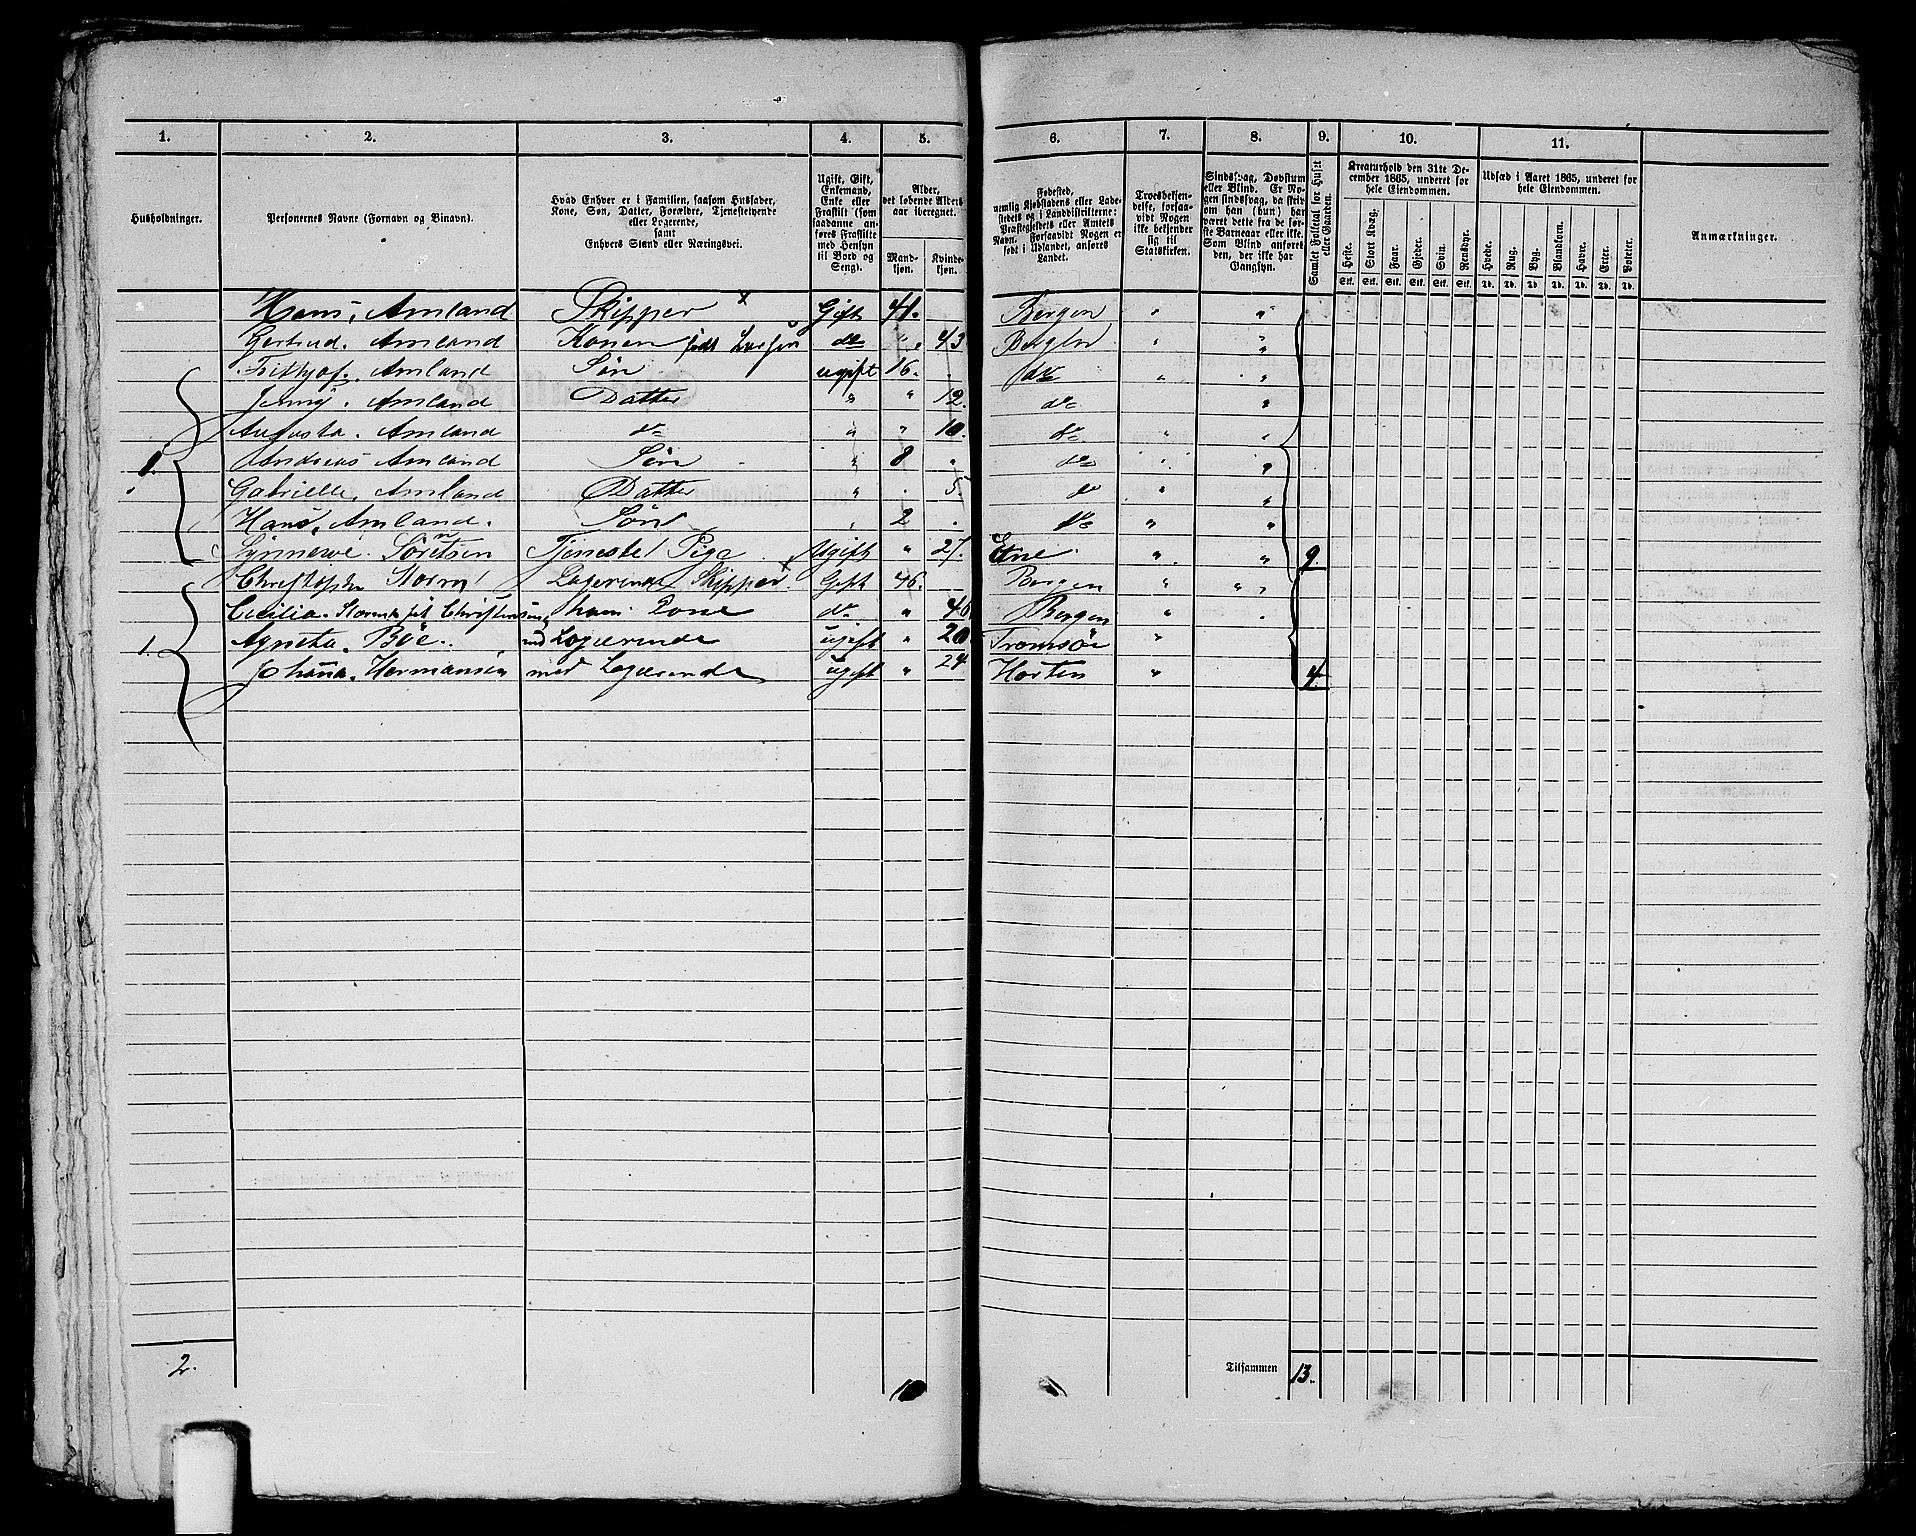 1. 2. 3. 4. 5. 6. 7. 8. 9. 10. 11.
Husholdninger.
Personernes Navne (Fornavn og Binavn).
Hvad Enhver er i Familien, saasom Husfader,
Kone, Søn, Datter, Forældre, Tjenestetyende
eller Logerende,
samt
Enhvers Stand eller Næringsvei.
Ugift, Gift,
Enkemand,
Enke eller
Fraskilt (som
saadanne an-
føres Fraskilte
med Hensyn
til Bord og
Seng).
Alder,
det løbende Alders-
aar iberegnet.
Mand-
kjøn.
Kvinde-
kjøn.
Fødested,
nemlig Kjøbstadens eller Lade-
stedets og i Landdistrikterne:
Præstegjeldets eller Amtets
Navn. Forsaavidt Nogen er
født i Udlandet, anføres
Landet.
Troesbekjen-
delse, forsaa-
vidt Nogen
ikke bekjender
sig til
Statskirken.
Sindssvag, Døvstum
eller Blind. Er No-
gen sindssvag, da skriv
om han (hun) har
været dette fra de før-
ste Barneaar eller ikke.
Som Blind anføres
den, der ikke har
Gangsyn.
Samlet Folketal for Huset
eller Gaarden.
Kreaturhold den 31te De-
cember 1865, underet for
hele Eiendommen.
Heste. Stort Kvæg. Faar. Gjeder. Svin. Rensdyr.
Stk. Stk. Stk. Stk. Stk. Stk.
Udsæd i Aaret 1865, underet for
hele Eiendommen.
Hvede. Rug. Byg. Blandkorn. Havre. Erter. Poteter.
Td. Td. Td. Td. Td. Td. Td.
Anmærkninger.
Hans, Amland Skipper x Gift 41. Bergen " "
Gertrud. Amland Konen født do " 43 Bergen " "
Frithjof. Amland Søn ugift 16. do " "
Jenny. Amland Datter " " 12. do "
Augusta. Amland do " " 10. do " "
1. Andreas Amland Søn " 8 " do " "
Gabrielle, Amland Datter " . 5 do " "
Hans, Amland. Søn " 2 . do " "
Synneve. Sørensen Tjeneste Pige Ugift " 27. Etne. " " 9.
Christopher Storm Logerende Skipper x Gift 46. Bergen " "
Cecilia. Storm født Christensen hans Kone do " 46 Bergen " .
1. Agneta. Böe. med Logerende ugift " 20 Tromsöe "
Johanna. Hermansen med Logerende ugift " 24 Horten " 4
2. 10 Tilsammen 13.